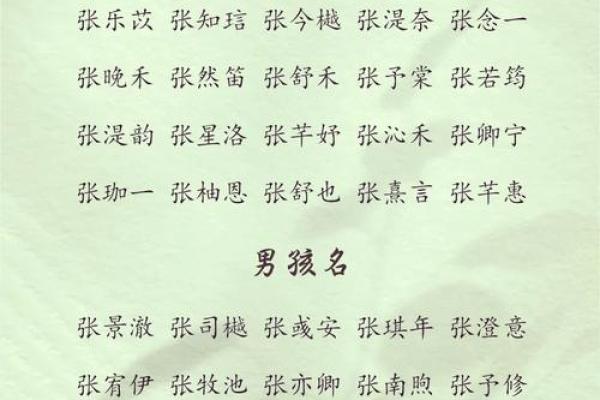 张乐苡 张知琂 张今樾 张湜奈 张念一
张晚禾 张然笛 张舒禾 张予棠 张若筠
张湜韵 张星洛 张芊妤 张沁禾 张卿宁
张珈一 张柚恩 张舒也 张熹言 张芊惠
男孩名
张景澈 张司樾 张彧安 张琪年 张澄意
张宥伊 张牧池 张亦卿 张南煦 张予修